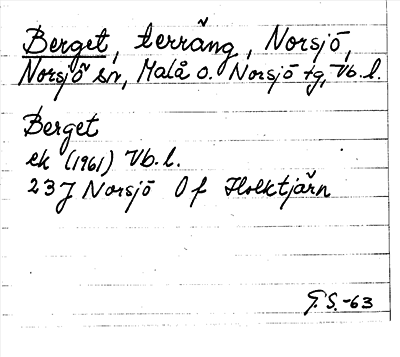 Berget, terräng, Norsjö,
Norsjö sn, Malå o. Norsjö tg, Vb. l.
Berget
ek (1961) Vb. l.
23J Norsjö 0 f Holktjärn
G. S. -63